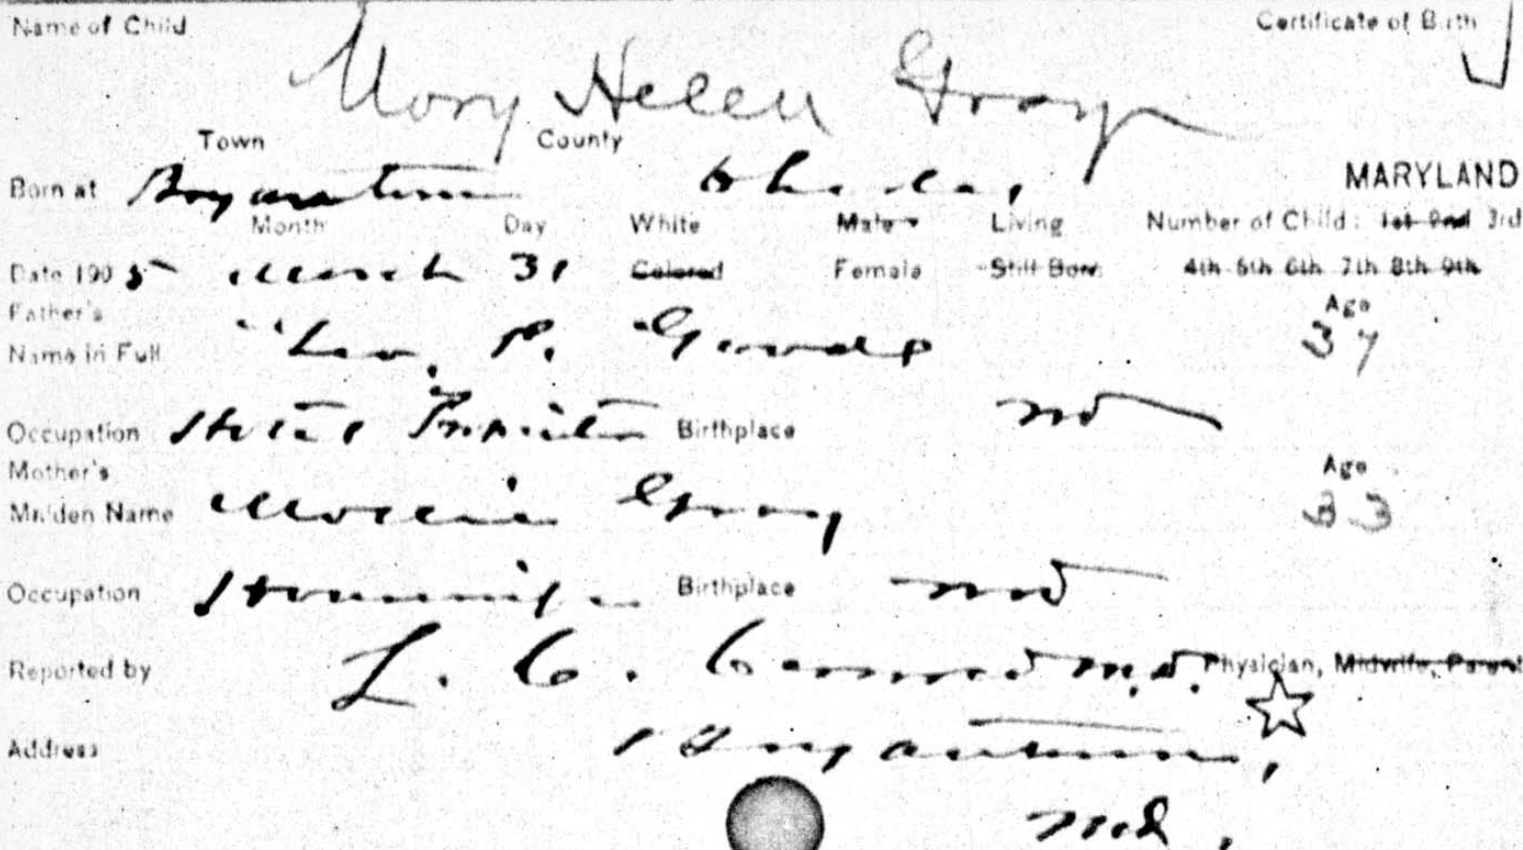 Name of Child Certificate of Birth
Mary Helen Gray
Town County
Born at Bryantown Charles, MARYLAND
Month Day White Male Living Number of Child: 1st 2nd 3rd
Date 1905 March 31 Colored Female Still Born 4th 5th 6th 7th 8th 9th
Father's Age
Name in Full P. 37
Occupation Hotel Proprietor Birthplace Md
Mother's Age
Maiden Name Mollie Gray 33
Occupation Housewife Birthplace Md
Reported by L. C. M.D. Physician, Midwife, Parent
Address Bryantown,
Md.